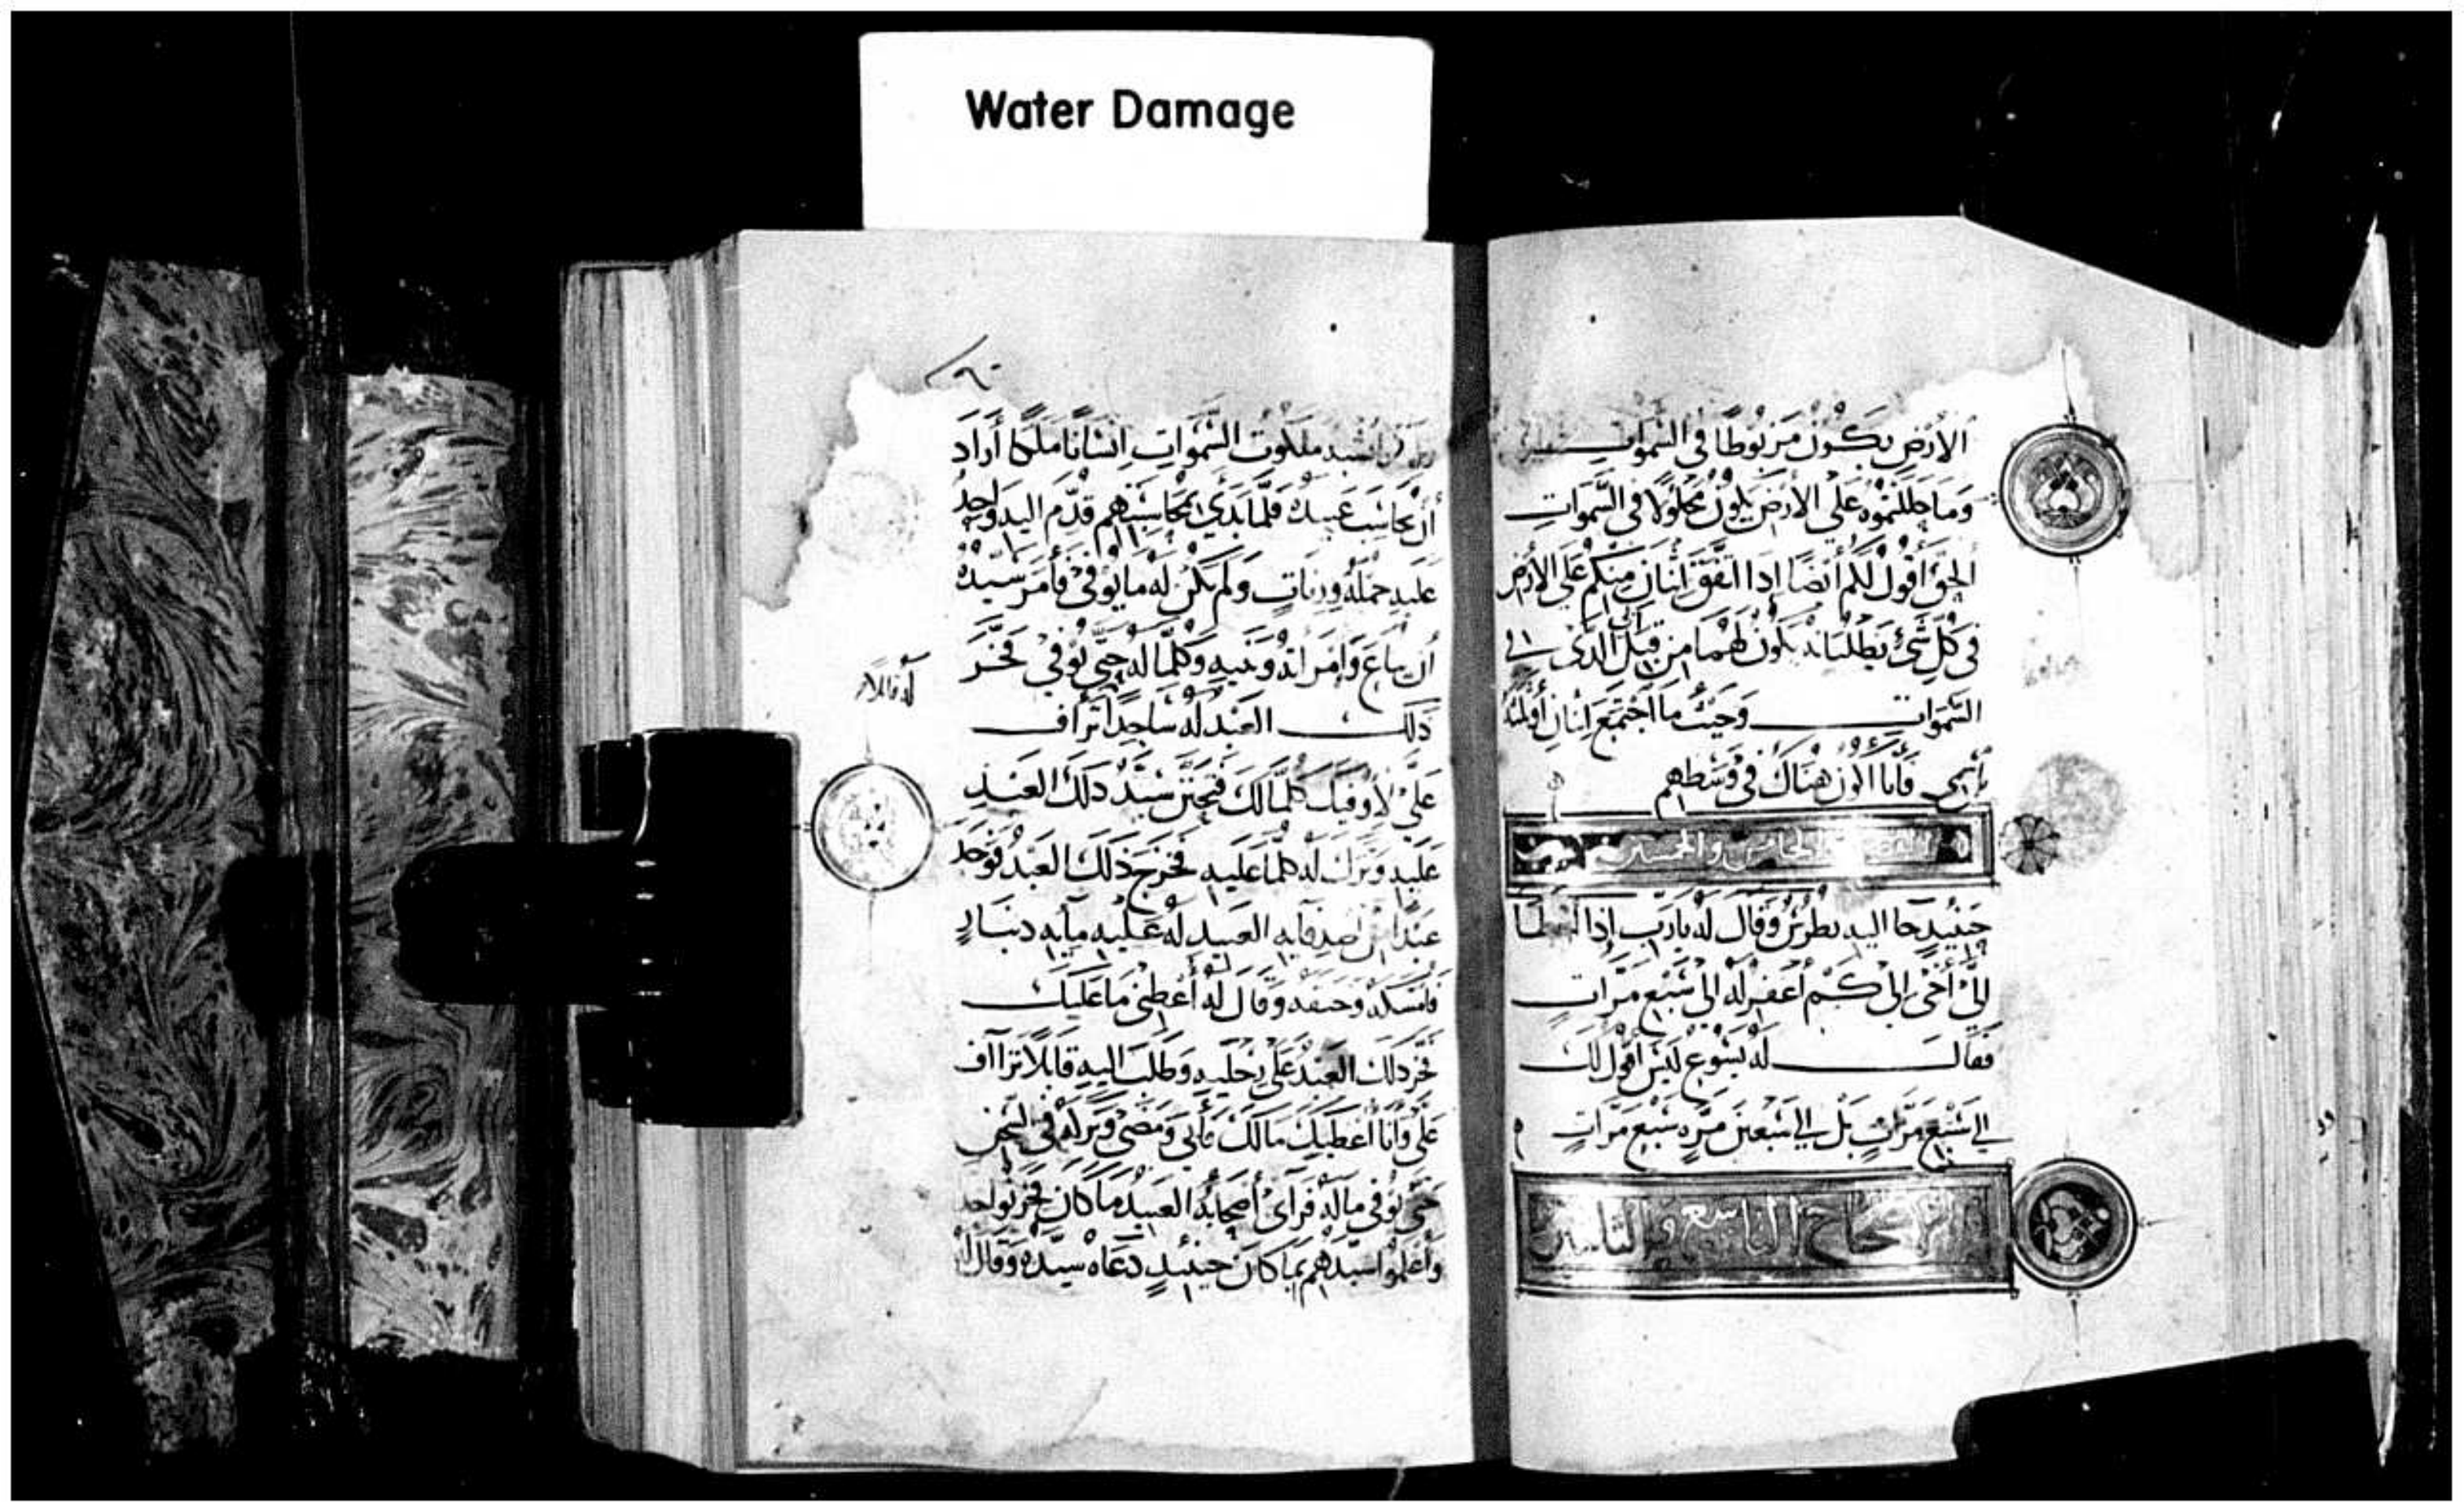 Water Damage
الارض يكون مربوطا في السموات
وما حللتموه على الارض يكون محلولا في السموات
الحق اقول لكم أيضا إذا اتفق اثنان منكم على الارض
في كل شئ يطلبانه يكون لهما من قبل ابي الذي في
السموات وحيث ما اجتمع اثنان أو ثلثة
بأسمي فأنا اكون هناك في وسطهم
الخامس والخمسين
حينيذ جا اليه بطرس وقال له يارب إذا
الي أخي الى كم أغفر له الى سبع مرات
فقال له يسوع ليس أقول لك
الي سبع مرات بل الي سبعين مره سبع مرات
الاصحاح التاسع والثلثين
يشبه ملكوت السموات انسانا ملكا أراد
أن يحاسب عبيده فلما بدي بمحاسبتهم قدم اليه واحد
عليه جملة وزنات ولم يكن له ما يوفي فأمر سيده
ان يباع وامراته وبنيه وكلما له حتي يوفي فخر
ذلك العبد له ساجدا تراف
علي لاوفيك كلما لك فتحنن سيد ذلك العبد
عليه وترك له كلما عليه فخرج ذلك العبد فوجد
عبدا من اصدقايه العبيد له عليه مايه دينار
فامسكه وخنقه وقال له أعطني ما عليك
فخر ذلك العبد على رجليه وطلب اليه قايلا تراأف
علي وانا أعطيك مالك فأبي ومضي وتركه في السجن
حتي يوفي ماله فرأى أصحابه العبيد ما كان فحزنوا جدا
وأعلموا سيدهم بما كان حينيذ دعاه سيده وقال له